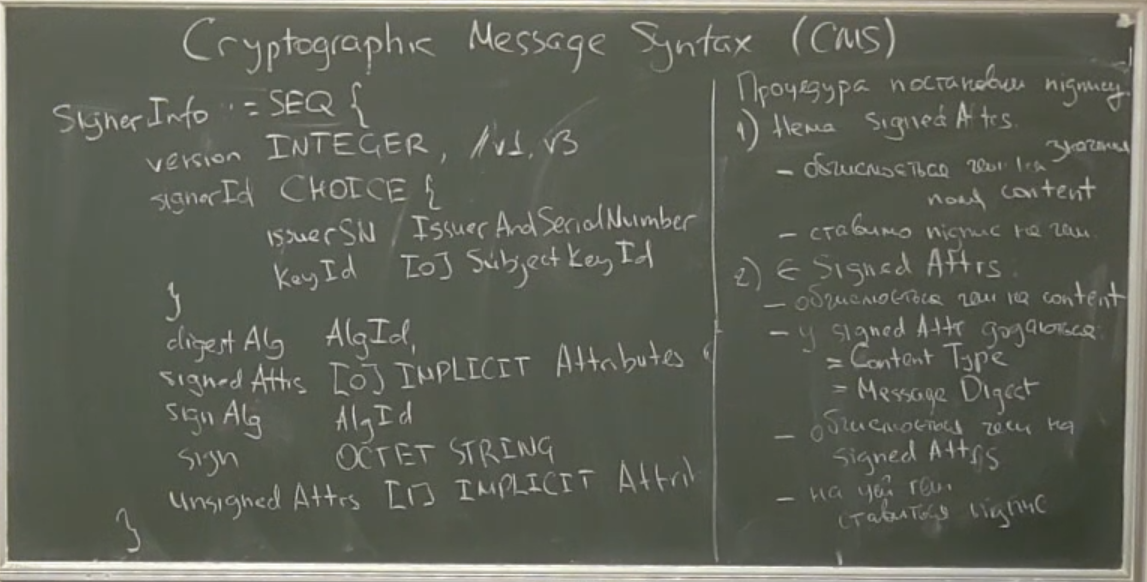 Cryptographic Message Syntax (CMS)
SignerInfo ::= SEQ {
version INTEGER, //v1, v3
signerId CHOICE {
issuerSN IssuerAndSerialNumber
KeyId [0] SubjectKeyId
}
digestAlg AlgId,
signedAttrs [0] IMPLICIT Attributes
signAlg AlgId
sign OCTET STRING
unsignedAttrs [1] IMPLICIT Attri
}
Процедура постановки підпису.
1) Нема Signed Attrs.
- обчислюється геш на значення
поля content
- ставимо підпис на геш.
2) Є Signed Attrs.
- обчислюється геш на content
- у signed Attr додаються:
= Content Type
= Message Digest
- обчислюється геш на
signed Attrs
- на цей геш
ставиться підпис